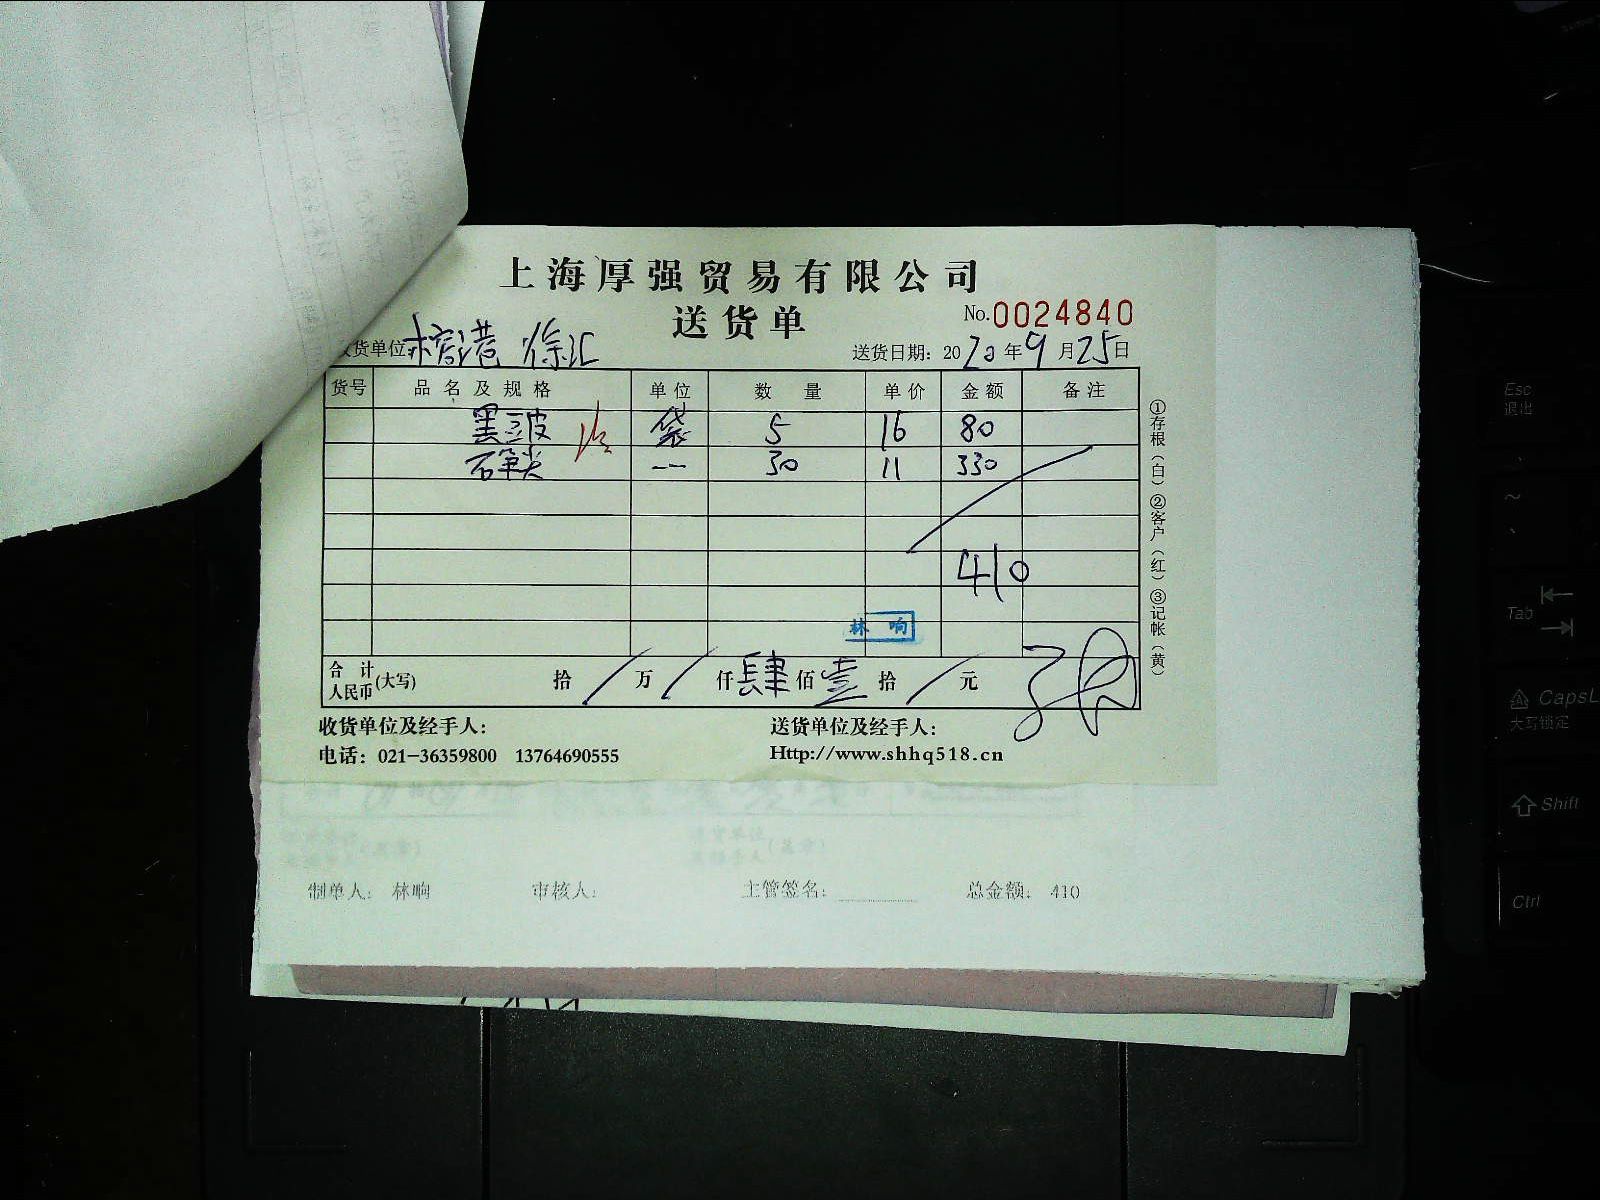 上海厚强贸易有限公司
送货单
No.0024840
收货单位 徐汇
送货日期：2020年9月25日
货号 品名及规格 单位 数量 单价 金额 备注
黑豆皮 袋 5 16 80
石笋尖 30 11 330
410
林响
合计人民币(大写) 拾/万/仟肆佰壹拾/元
收货单位及经手人： 送货单位及经手人：
电话：021-36359800 13764690555 Http://www.shhq518.cn
①存根（白）②客户（红）③记帐（黄）
制单人：林响 审核人： 主管签名： 总金额：410
Esc
退出
Tab
CapsL
大写锁定
Shift
Ctrl